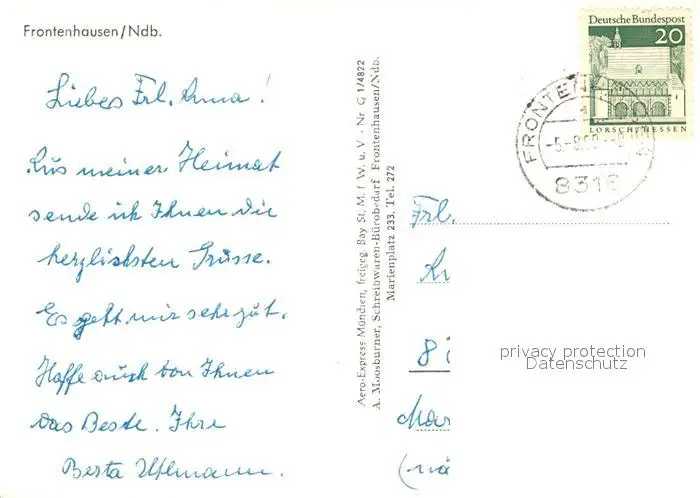 Frontenhausen/Ndb.
Liebes Frl. Anna!
Aus meiner Heimat
sende ich Ihnen die
herzlichsten Grüsse.
Es geht mir sehr gut.
Hoffe auch von Ihnen
das Beste. Ihre
Berta
Aero-Express München, freigeg. Bay St. M. f. W. u. V. - Nr. G 1/4822
A. Moosburner, Schreibwaren-Bürobedarf Frontenhausen/Ndb.
Marienplatz 233, Tel. 272
Deutsche Bundespost
20
LORSCH/HESSEN
FRONTEN
8318
Frl.
8
privacy protection
Datenschutz